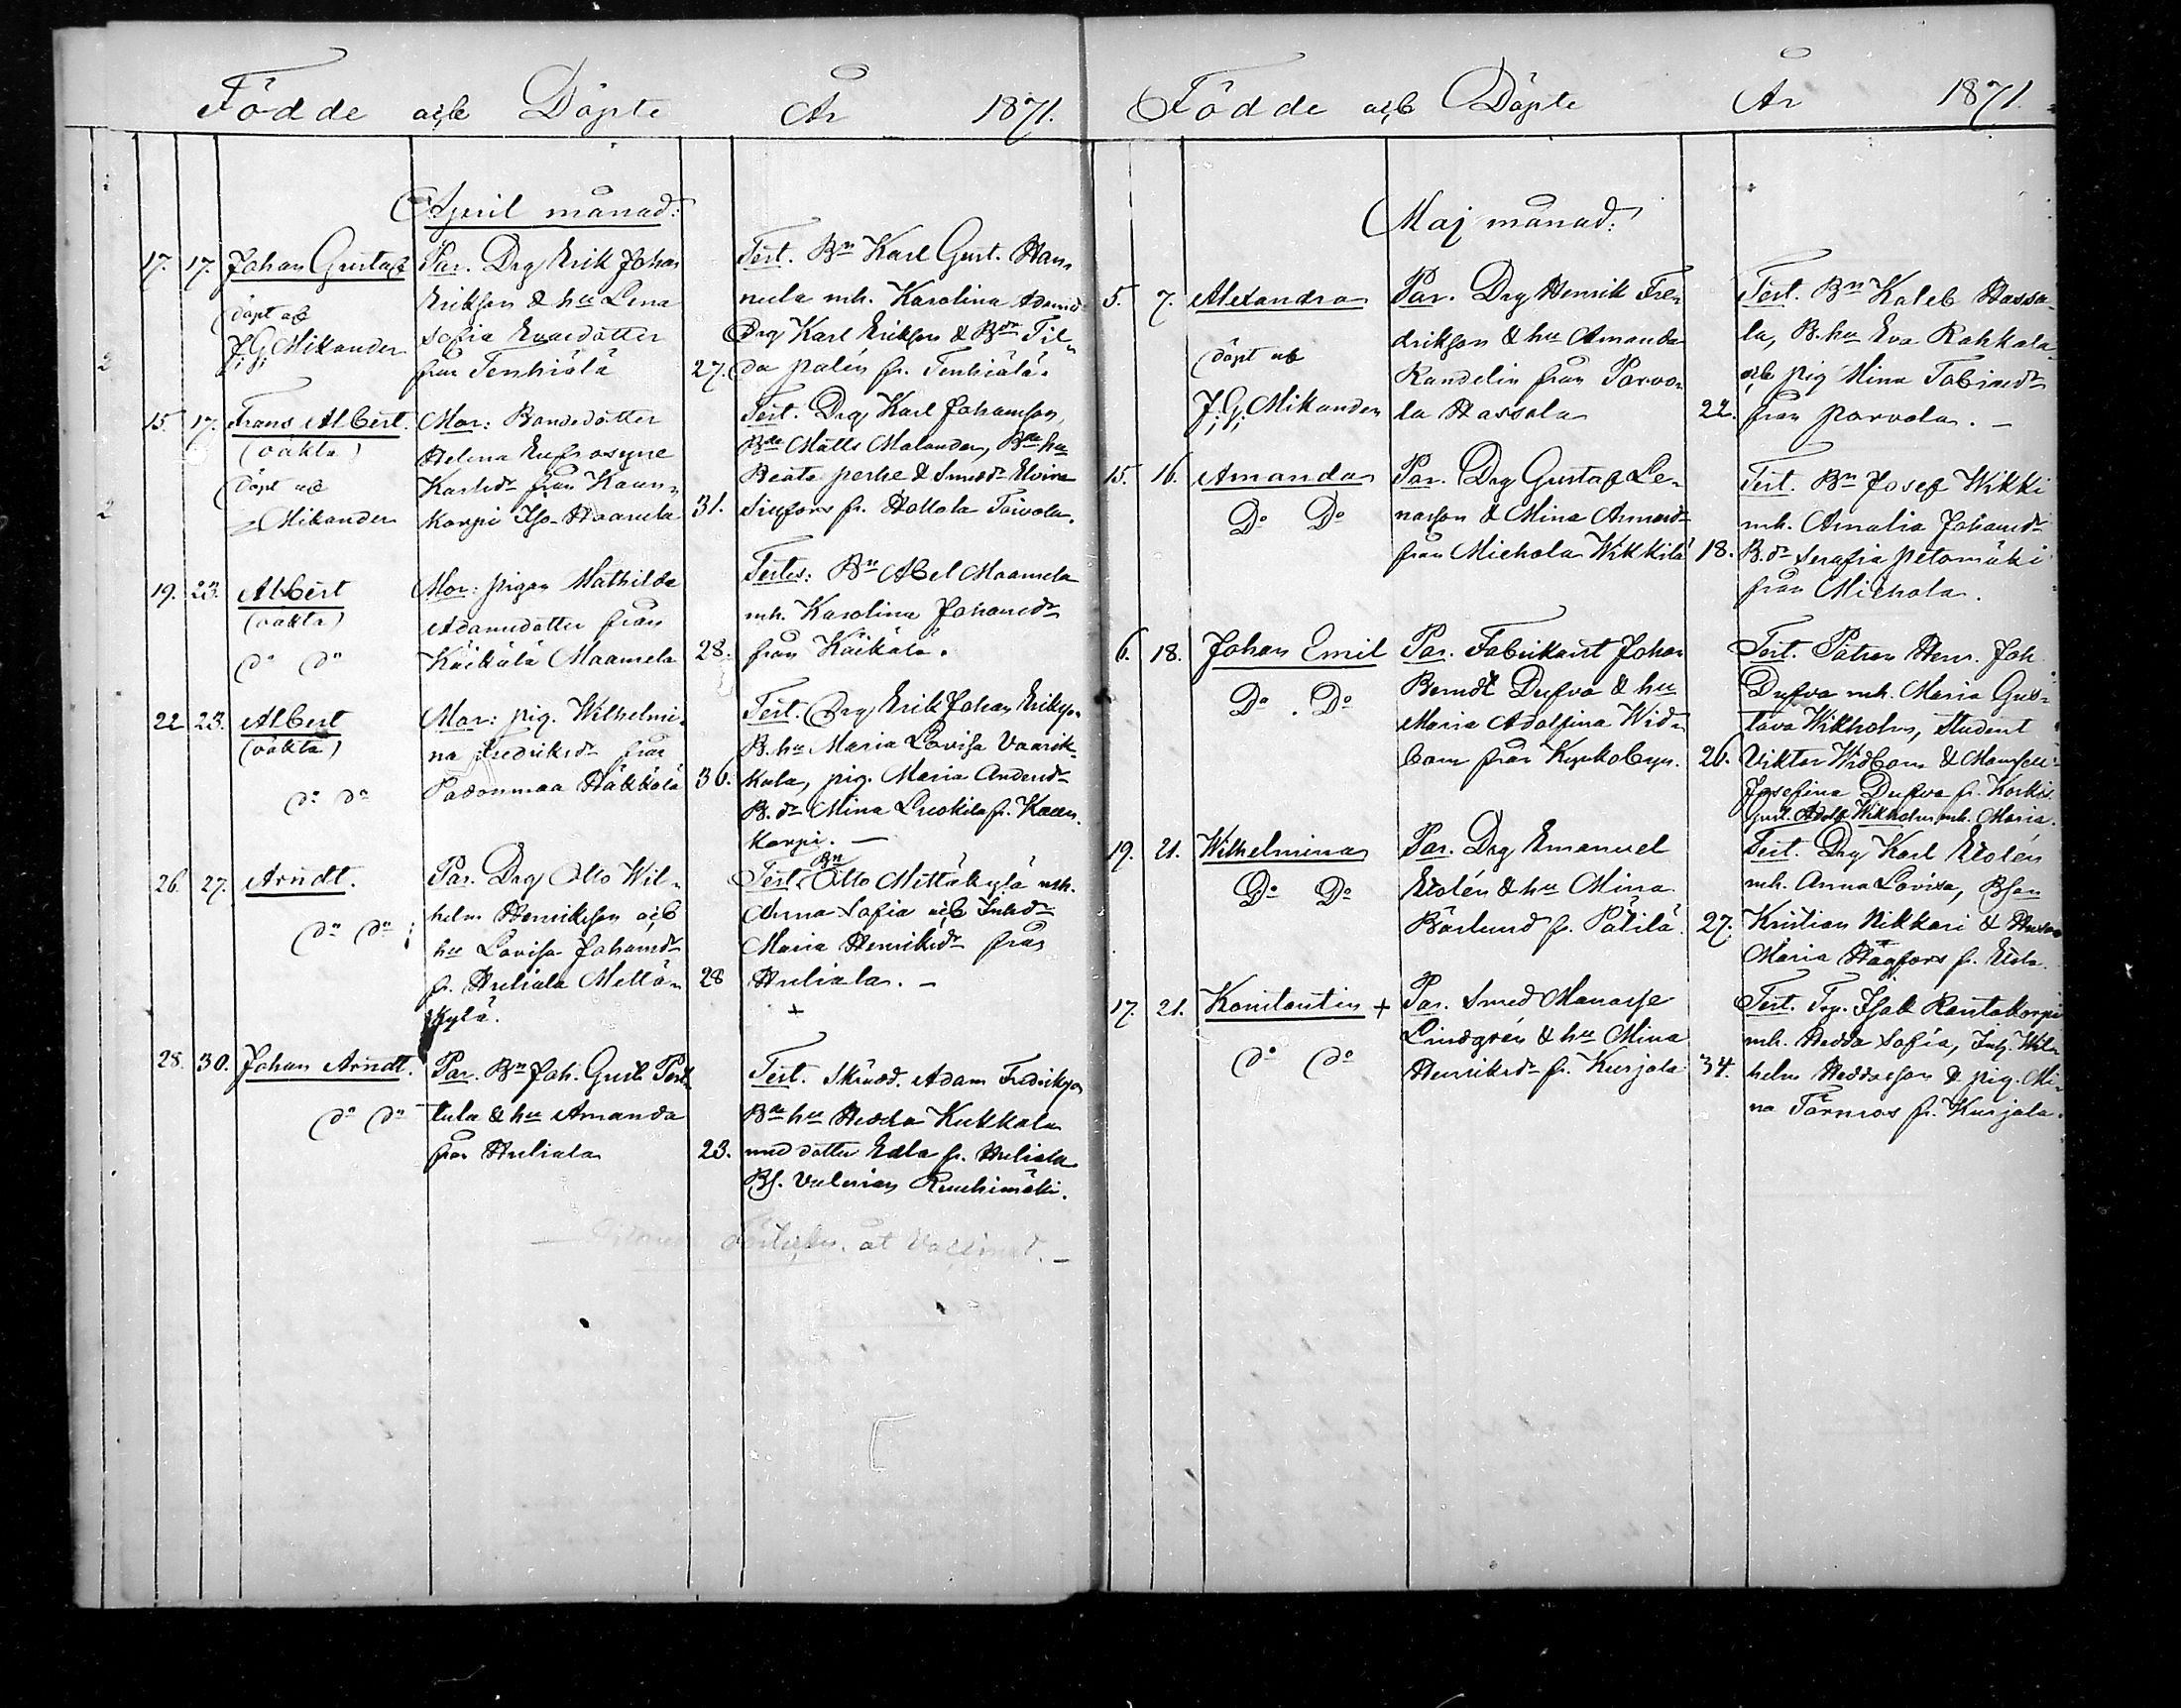 Födde och Döpte År 1871.
April månad:
17. 17. Johan Gustaf
döpt af
J. G. Mikander
Par. Drg Erik Johan
Erikson & hu Lena
Sofia Evaedotter
från Tenhiälä
27.
Test. Bn Karl Gust. Han-
nula mh. Karolina Adamsd.
Drg Karl Erikson & Bdr Til-
da Palén fr. Tenhiälä.
15. 17. Frans Albert.
(oäkta)
Döpt af
Mikander
Mor: Bondedotter
Helena Eufrosyne
Karlsdr från Kaun-
korpi Iso Haavela
31.
Test. Drg Karl Johansson,
Bde Matts Malander, Bde hu
Beata Perhe & Smedr Elvira
fr. Hollola Toivola.
19. 23. Albert
(oäkta)
do do
Mor: pigan Mathilda
Adamsdotter från
Käikälä Maamela
28.
Testes: Bn Abel Maamela
mh. Karolina Johansdr
från Käikälä.
22 23. Albert
(oäkta)
do do
Mor: pig. Wilhelmi-
na Fredriksdr från
Padonmaa Häkkälä
36.
Test. Drg Erik Johan Erikson
B. hu Maria Lovisa Vaarik-
kala, pig. Maria Andersdr
B. dr Mina Luokila fr. Kaun-
korpi. —
26. 27. Arndt.
do do
Par. Drg Otto Wil-
helm Henrikson och
hu Lovisa Johansdr
fr. Huliala Mettä-
kylä.
28
Test. Bn Otto Mettäkylä mh.
Anna Sofia och Inhdr
Maria Henriksdr från
Huliala. —
+
28. 30. Johan Arndt.
do do
Par. Bn Joh. Gust. Pert-
tula & hu Amanda
från Huliala
23.
Test. Skrädd. Adam Fredrikson
Bde hu Hedda Kukkala
med dotter Edla fr. Huliala
Bs. Valerian Ruuhimäki.
Födde och Döpte År 1871.
Maj månad:
5. 7. Alexandra
döpt af
J. G. Mikander
Par. Drg Henrik Fre-
drikson & hu Amanda
Randelin från Porvo-
la Hassala
22.
Test. Bn Kaleb Hassa-
la, B. hu Eva Rahkala
och pig Mina Tobiaedr
från Porvola. —
15. 16. Amanda
Do Do
Par. Drg Gustaf Le-
narson & Mina Annaedr
från Michola Wikkilä
18.
Test. Bn Josef Wikki
mh. Amalia Johansdr
B. dr Serafia Petomäki
från Michola.
6. 18. Johan Emil
Do. Do
Par. Fabrikant Johan
Berndt Dufva & hu
Maria Adolfina Wid-
bom från Kyrkobyn.
26.
Test. Patron Henr. Joh.
Dufva mh. Maria Gus-
tava Wikholm, Student
Viktor Widbom & Mamsell
Josefina Dufva fr. Korkis.
Gust. Adolf Wikholm mh. Maria.
19. 21. Wilhelmina
Do Do
Par. Drg Emanuel
Etolén & hu Mina
Bärlund fr. Pätilä.
27.
Test. Drg Karl Etolén
mh. Anna Lovisa, Bson
Kristian Nikkari & Husan
Maria Hagfors fr. Etola
17. 21. Konstantin +
do do
Par. Smed Manasse
Lindgrén & hu Mina
Henriksdr fr. Kurjala
34.
Test. Trp. Isak Rantakorpi
mh. Hedda Sofia, Inh. Wil-
helm Heddasson & pig. Mi-
na Törnros fr. Kurjala.